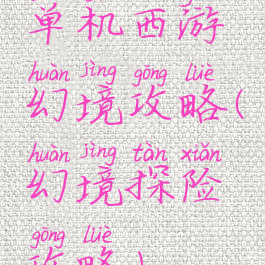 单机西游
huàn jìng gōng lüè
幻境攻略(
huàn jìng tàn xiǎn
幻境探险
gōng lüè
攻略)